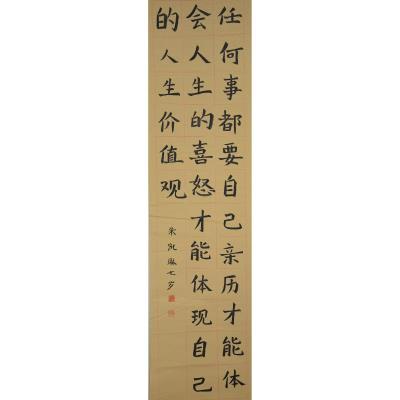 任何事都要自己亲历才能体
会人生的喜怒才能体现自己
的人生价值观
七岁